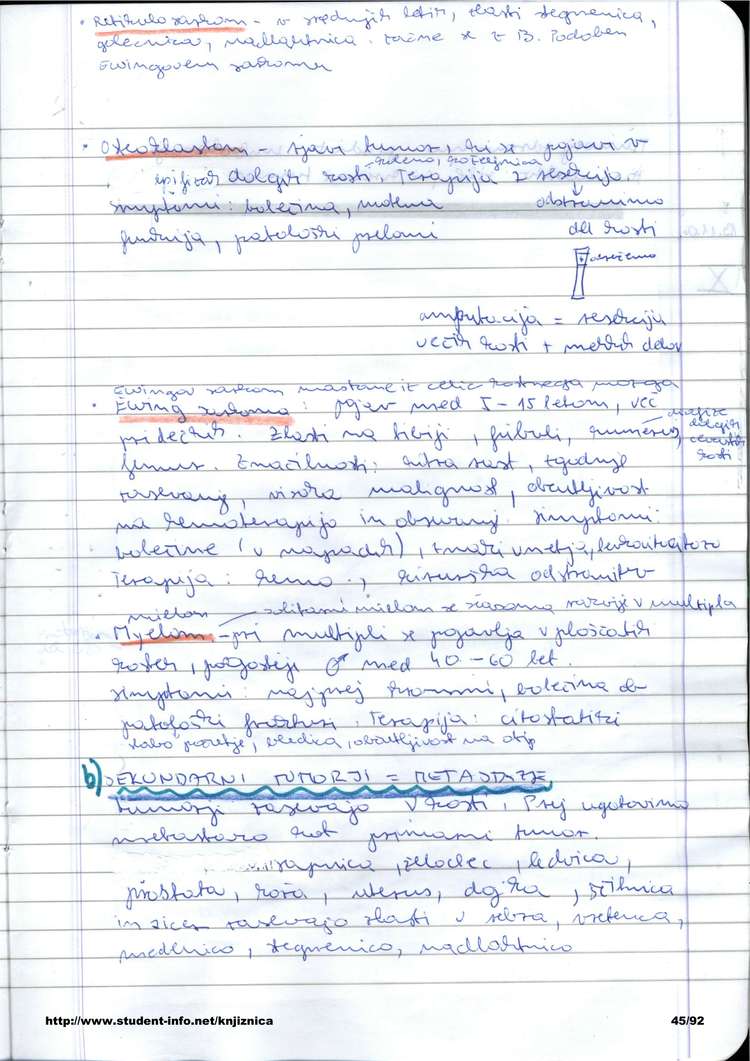 • Retikulosarkom - v srednjih letih, zlasti stegnenica,
golenica, nadlahtnica. začne se z B. Podoben
Ewingovem sarkomu
• Osteoklastom - sjavi tumor, ki se pojavi v
koleno, rokeljnica
epifizah dolgih kosti. Terapija z resekcijo.
simptomi: bolečina, motena odstranimo
funkcija, patološki prelomi del kosti
odrežemo
amputacija = resekcija
večih kosti + mehkih delov
Ewingov sarkom nastane iz celic kostnega mozga
• Ewing sarkoma: pojav med 5-15 letom, več
pri dečkih. Zlasti na tibiji, fibuli, humerus,
dolgih
cevastih
kosti
femur. Značilnosti: hitra rast, zgodnje
rasevanje, visoka malignost, občutljivost
na kemoterapijo in obsevanj. simptomi:
bolečine (v napadih), znaki vnetja, levkocitoza
Terapija: kemo., kirurška odstranitev
mielom - solitarni mielom se sčasoma razvije v multipla
• Myelom - pri multipli se pojavlja v ploščatih
kosteh, pogosteje ♂ med 40-60 let.
simptomi: najprej, bolečina ob
patološki frakturi. Terapija: citostatiki
slabo počutje, bledica, občutljivost na otip
b) SEKUNDARNI TUMORJI = METASTAZE
tumorji rasevajo v kosti. Prej ugotovimo
metastazo kot primarni tumor.
sapnica, želodec, ledvica,
prostata, koža, uterus, dojka, ščitnica
in sicer rasevajo zlasti v rebra, vretenca,
medenico, stegnenico, nadlahtnico
http://www.student-info.net/knjiznica 45/92